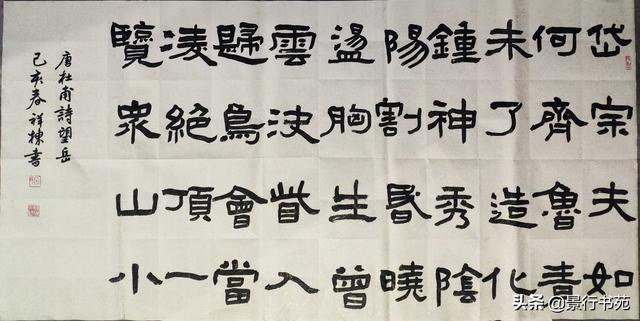 岱宗夫如
何齊魯青
未了造化
鍾神秀陰
陽割昏曉
盪胸生曾
雲決眥入
歸鳥會當
淩絕頂一
覽眾山小
唐杜甫詩望岳
己亥春祥棟書
头条@景行书苑